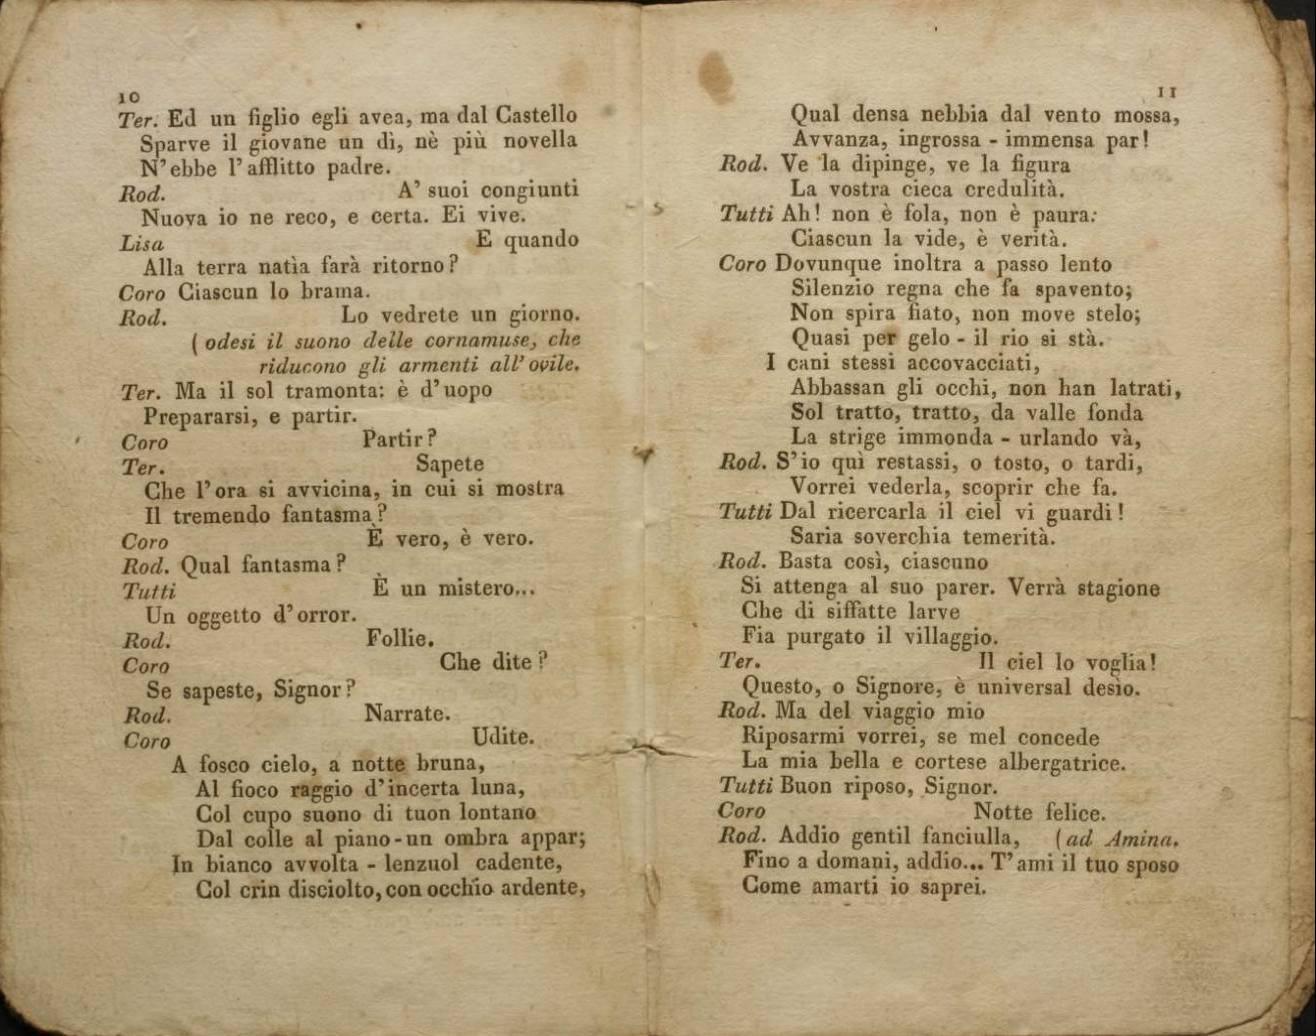 10
Ter. Ed un figlio egli avea, ma dal Castello
Sparve il giovane un dì, nè più novella
N'ebbe l'afflitto padre.
Rod. A' suoi congiunti
Nuova io ne reco, e certa. Ei vive.
Lisa E quando
Alla terra natìa farà ritorno?
Coro Ciascun lo brama.
Rod. Lo vedrete un giorno.
( odesi il suono delle cornamuse, che
riducono gli armenti all'ovile.
Ter. Ma il sol tramonta: è d'uopo
Prepararsi, e partir.
Coro Partir?
Ter. Sapete
Che l'ora si avvicina, in cui si mostra
Il tremendo fantasma?
Coro È vero, è vero.
Rod. Qual fantasma?
Tutti È un mistero...
Un oggetto d'orror.
Rod. Follie.
Coro Che dite?
Se sapeste, Signor?
Rod. Narrate.
Coro Udite.
A fosco cielo, a notte bruna,
Al fioco raggio d'incerta luna,
Col cupo suono di tuon lontano
Dal colle al piano - un ombra appar;
In bianco avvolta - lenzuol cadente,
Col crin disciolto, con occhio ardente,
11
Qual densa nebbia dal vento mossa,
Avvanza, ingrossa - immensa par!
Rod. Ve la dipinge, ve la figura
La vostra cieca credulità.
Tutti Ah! non è fola, non è paura:
Ciascun la vide, è verità.
Coro Dovunque inoltra a passo lento
Silenzio regna che fa spavento;
Non spira fiato, non move stelo;
Quasi per gelo - il rio si stà.
I cani stessi accovacciati,
Abbassan gli occhi, non han latrati,
Sol tratto, tratto, da valle fonda
La strige immonda - urlando và,
Rod. S'io quì restassi, o tosto, o tardi,
Vorrei vederla, scoprir che fa.
Tutti Dal ricercarla il ciel vi guardi!
Saria soverchia temerità.
Rod. Basta così, ciascuno
Si attenga al suo parer. Verrà stagione
Che di siffatte larve
Fia purgato il villaggio.
Ter. Il ciel lo voglia!
Questo, o Signore, è universal desìo.
Rod. Ma del viaggio mio
Riposarmi vorrei, se mel concede
La mia bella e cortese albergatrice.
Tutti Buon riposo, Signor.
Coro Notte felice.
Rod. Addio gentil fanciulla, ( ad Amina.
Fino a domani, addio... T'ami il tuo sposo
Come amarti io saprei.